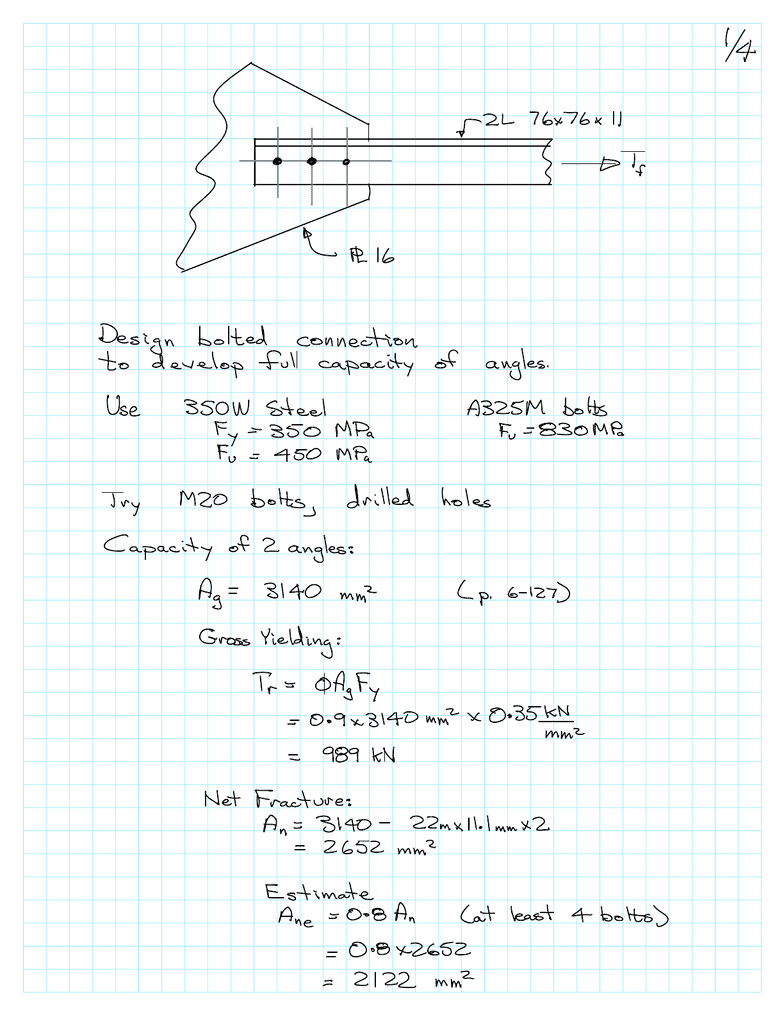 1/4
2L 76x76x11
Tf
PL 16
Design bolted connection
to develop full capacity of angles.
Use 350W Steel
Fy = 350 MPa
Fu = 450 MPa
A325M bolts
Fu = 830 MPa
Try M20 bolts, drilled holes
Capacity of 2 angles:
Ag = 3140 mm² (p. 6-127)
Gross Yielding:
Tr = ϕAgFy
= 0.9 x 3140 mm² x 0.35 kN/mm²
= 989 kN
Net Fracture:
An = 3140 - 22m x 11.1mm x 2
= 2652 mm²
Estimate
Ane = 0.8 An (at least 4 bolts)
= 0.8 x 2652
= 2122 mm²